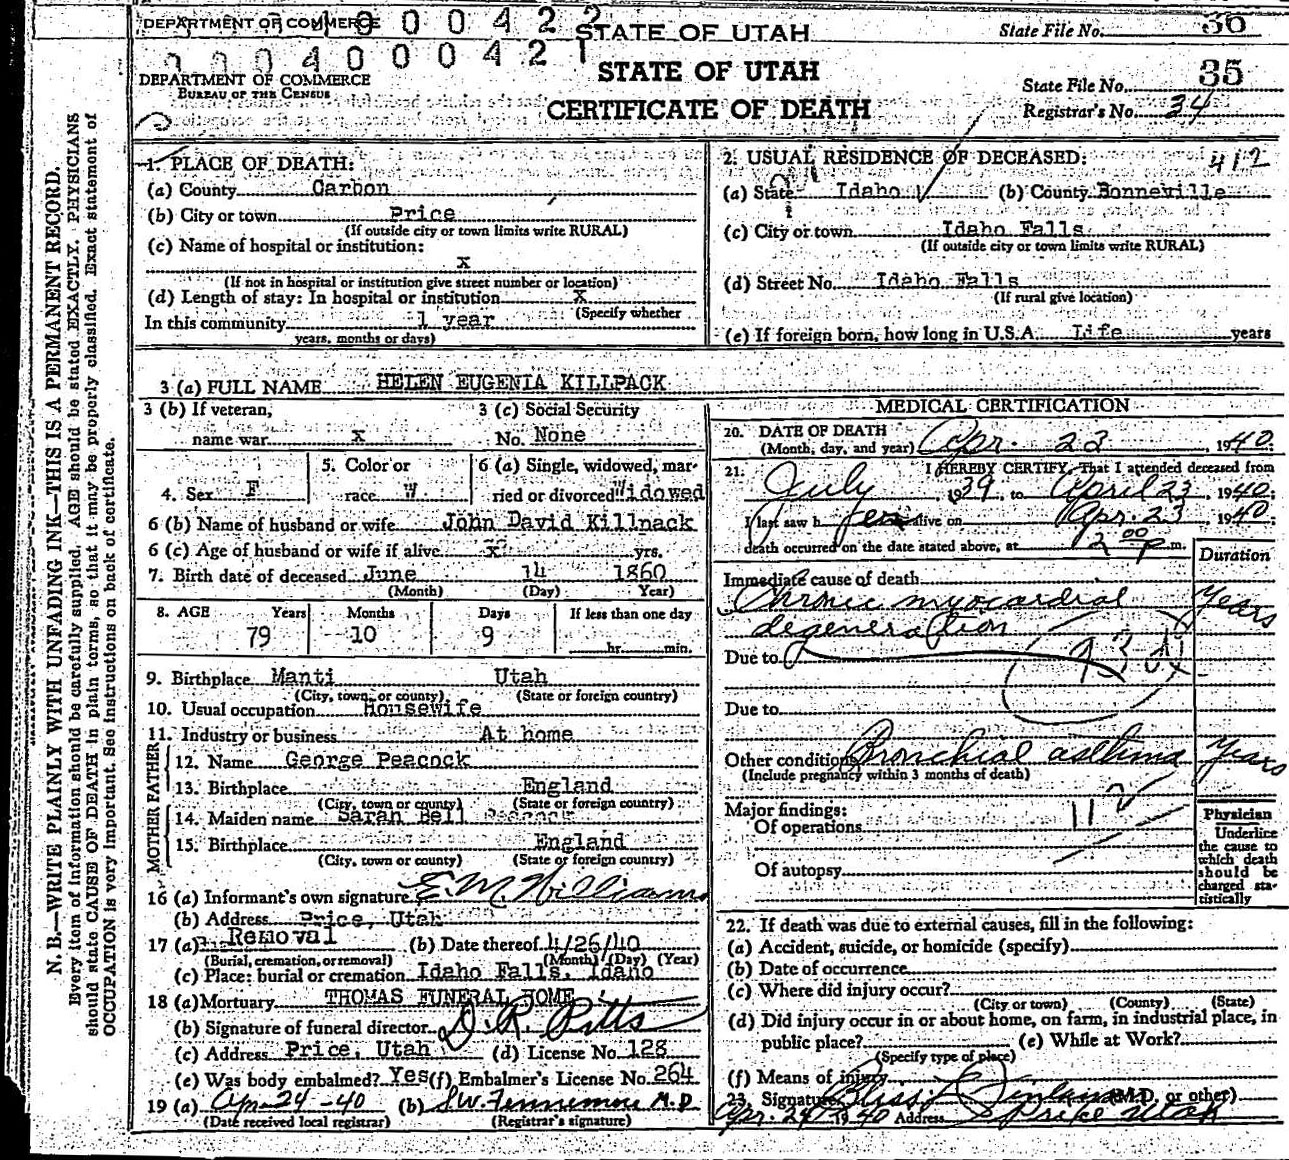 DEPARTMENT OF COMMERCE 0 0 4 2 2 STATE OF UTAH State File No. 36
0 0 0 4 0 0 0 4 2 1
DEPARTMENT OF COMMERCE STATE OF UTAH State File No. 35
BUREAU OF THE CENSUS
CERTIFICATE OF DEATH Registrar's No. 34
N. B.—WRITE PLAINLY WITH UNFADING INK—THIS IS A PERMANENT RECORD.
Every item of information should be carefully supplied. AGE should be stated EXACTLY. PHYSICIANS
should state CAUSE OF DEATH in plain terms, so that it may be properly classified. Exact statement of
OCCUPATION is very important. See instructions on back of certificate.
1. PLACE OF DEATH:
(a) County Carbon
(b) City or town Price
(If outside city or town limits write RURAL)
(c) Name of hospital or institution:
x
(If not in hospital or institution give street number or location)
(d) Length of stay: In hospital or institution x
(Specify whether
In this community 1 year
years, months or days)
2. USUAL RESIDENCE OF DECEASED: 412
(a) State Idaho (b) County Bonneville
(c) City or town Idaho Falls
(If outside city or town limits write RURAL)
(d) Street No. Idaho Falls
(If rural give location)
(e) If foreign born, how long in U.S.A. Life years
3 (a) FULL NAME HELEN EUGENIA KILLPACK
3 (b) If veteran, 3 (c) Social Security
name war x No. None
4. Sex F 5. Color or race W 6 (a) Single, widowed, married or divorced Widowed
6 (b) Name of husband or wife John David Killpack
6 (c) Age of husband or wife if alive x yrs.
7. Birth date of deceased June 14 1860
(Month) (Day) (Year)
8. AGE Years Months Days If less than one day
79 10 9 hr. min.
9. Birthplace Manti Utah
(City, town, or county) (State or foreign country)
10. Usual occupation Housewife
11. Industry or business At home
FATHER
12. Name George Peacock
13. Birthplace England
(City, town or county) (State or foreign country)
MOTHER
14. Maiden name Sarah Bell
15. Birthplace England
(City, town or county) (State or foreign country)
16 (a) Informant's own signature E. M. Williams
(b) Address Price, Utah
17 (a) Removal (b) Date thereof 4/26/40
(Burial, cremation, or removal) (Month) (Day) (Year)
(c) Place: burial or cremation Idaho Falls, Idaho
18 (a) Mortuary THOMAS FUNERAL HOME
(b) Signature of funeral director D. R. Pitts
(c) Address Price, Utah (d) License No. 128
(e) Was body embalmed? Yes (f) Embalmer's License No. 264
19 (a) Apr-24-40 (b) S.W. Fennemore M.D
(Date received local registrar) (Registrar's signature)
MEDICAL CERTIFICATION
20. DATE OF DEATH
(Month, day, and year) Apr. 23, 1940
21. I HEREBY CERTIFY, That I attended deceased from
July, 1939, to April 23, 1940;
I last saw her alive on Apr. 23 1940;
death occurred on the date stated above, at 2 00 p m.
Duration
Immediate cause of death
Chronic myocardial Years
degeneration
Due to 93d
Due to
Other conditions Bronchial asthma Years
(Include pregnancy within 3 months of death)
Major findings:
Of operations 112
Of autopsy
Physician
Underline
the cause to
which death
should be
charged sta-
tistically
22. If death was due to external causes, fill in the following:
(a) Accident, suicide, or homicide (specify)
(b) Date of occurrence
(c) Where did injury occur?
(City or town) (County) (State)
(d) Did injury occur in or about home, on farm, in industrial place, in
public place? (e) While at Work?
(Specify type of place)
(f) Means of injury
23. Signature Bliss L Finlayson (M.D. or other)
Apr. 24 1940 Address Price Utah